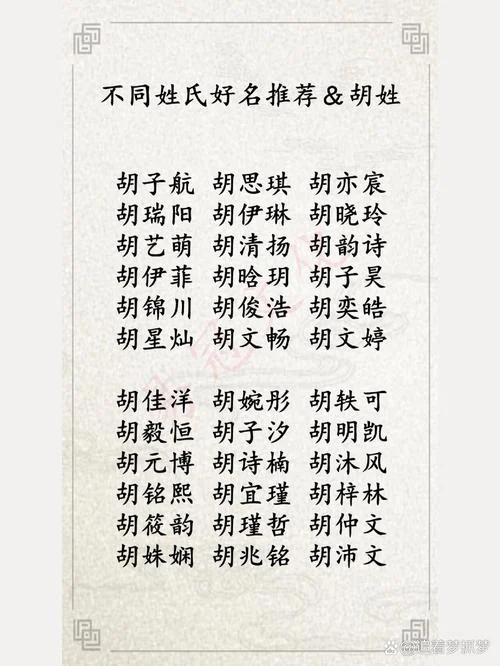 不同姓氏好名推荐&胡姓
胡子航 胡思琪 胡亦宸
胡瑞阳 胡伊琳 胡晓玲
胡艺萌 胡清扬 胡韵诗
胡伊菲 胡晗玥 胡子昊
胡锦川 胡俊浩 胡奕皓
胡星灿 胡文畅 胡文婷
胡佳洋 胡婉彤 胡轶可
胡毅恒 胡子汐 胡明凯
胡元博 胡诗楠 胡沐风
胡铭熙 胡宜瑾 胡梓林
胡筱韵 胡瑾哲 胡仲文
胡姝娴 胡兆铭 胡沛文
着梦抓梦